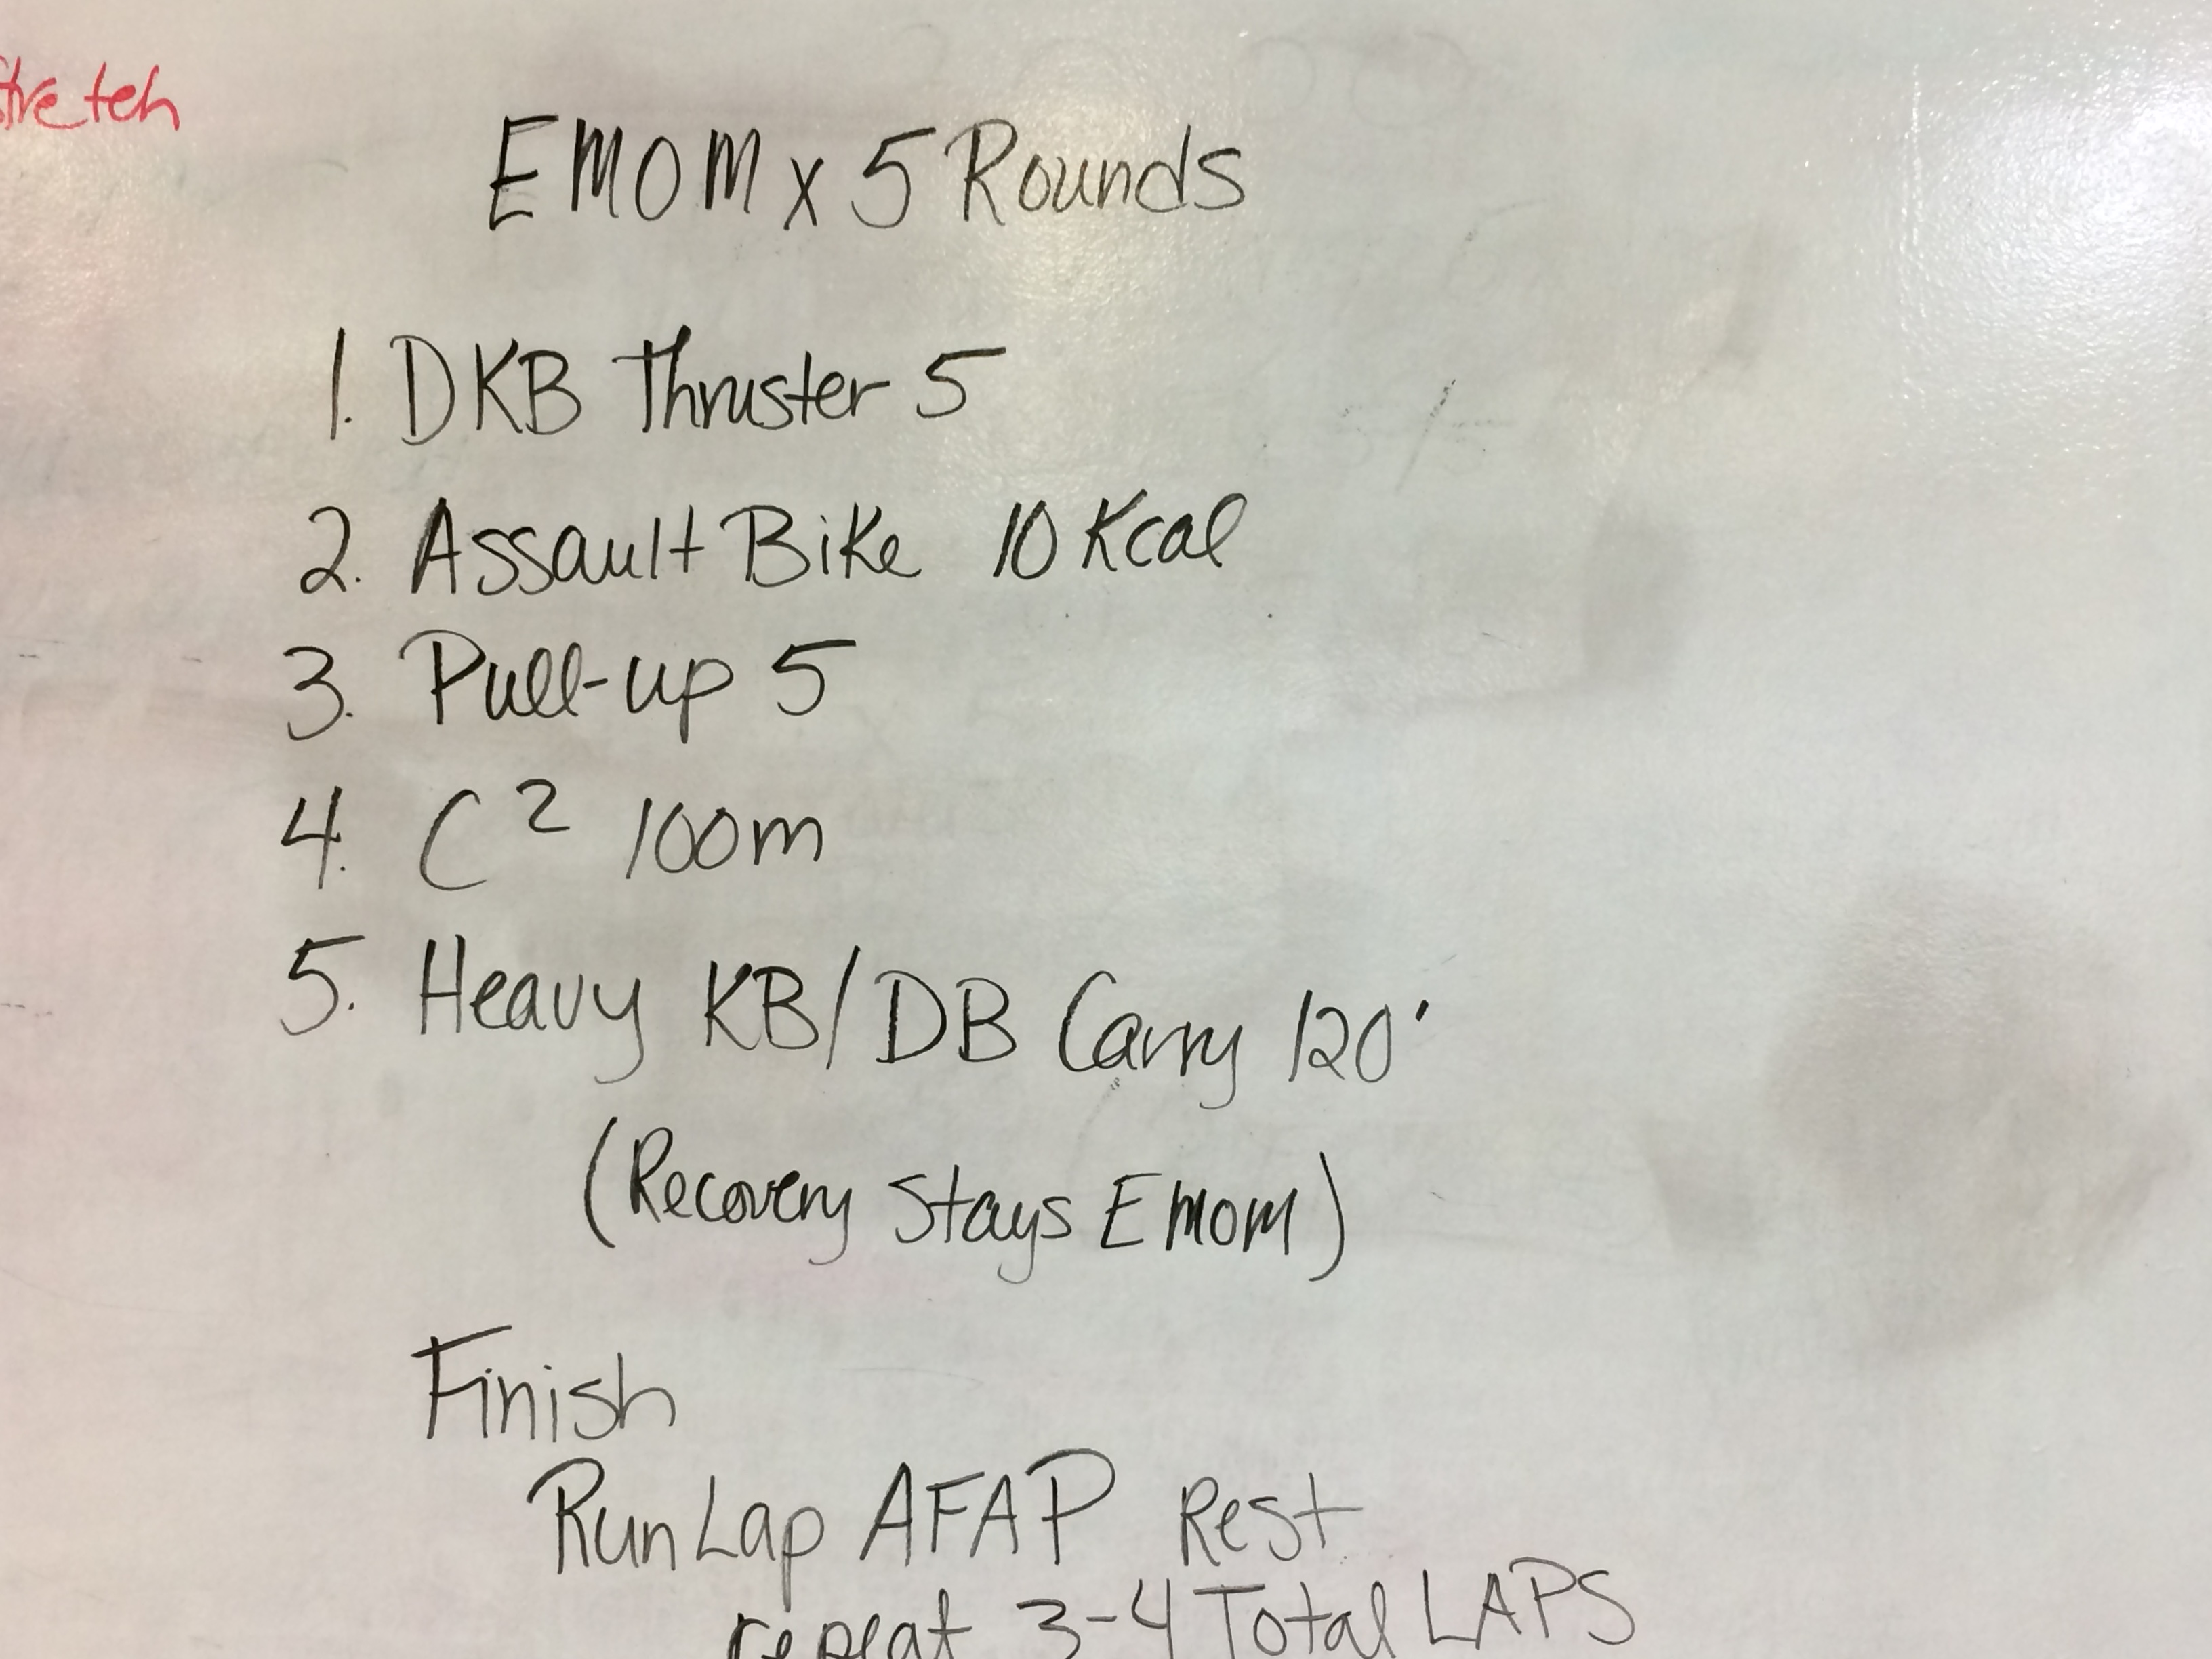 Stretch
EMOM x 5 Rounds
1. DKB Thruster 5
2. Assault Bike 10 Kcal
3. Pull-up 5
4. C² 100m
5. Heavy KB/DB Carry 120'
(Recovery Stays EMOM)
Finish
Run Lap AFAP Rest
repeat 3-4 Total LAPS